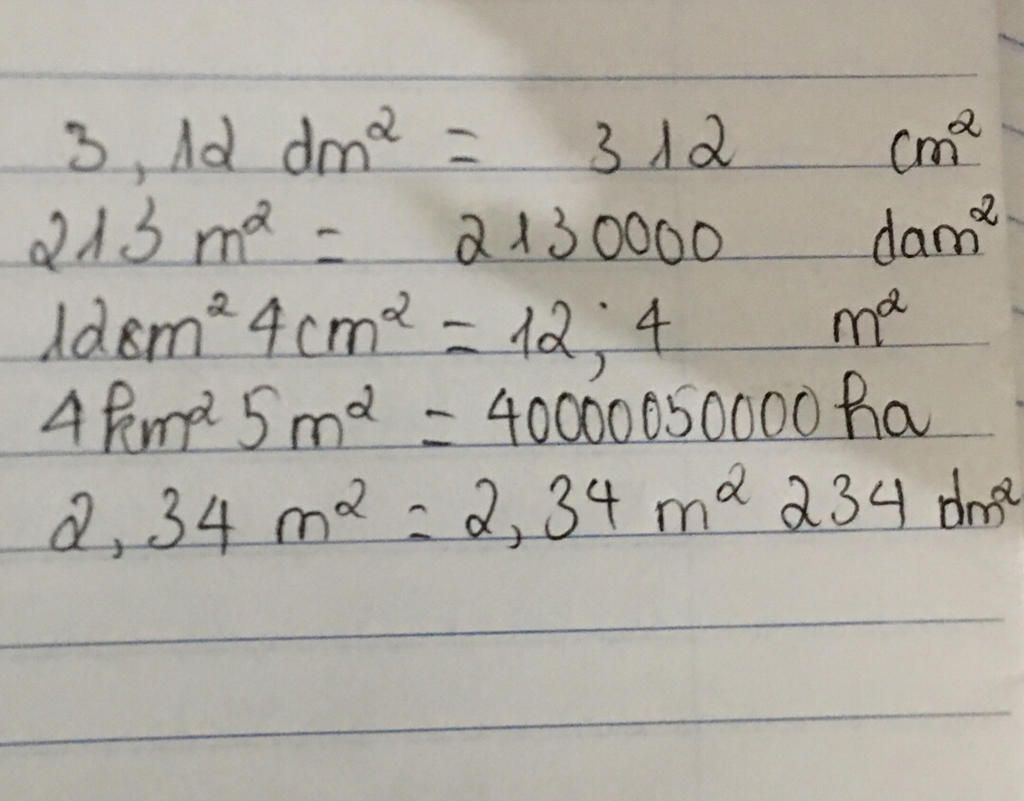 3,12 dm² = 312 cm²
213 m² = 2130000 dam²
12cm² 4cm² = 12,4 m²
4km² 5m² = 40000050000 ha
2,34 m² = 2,34 m² 234 dm²